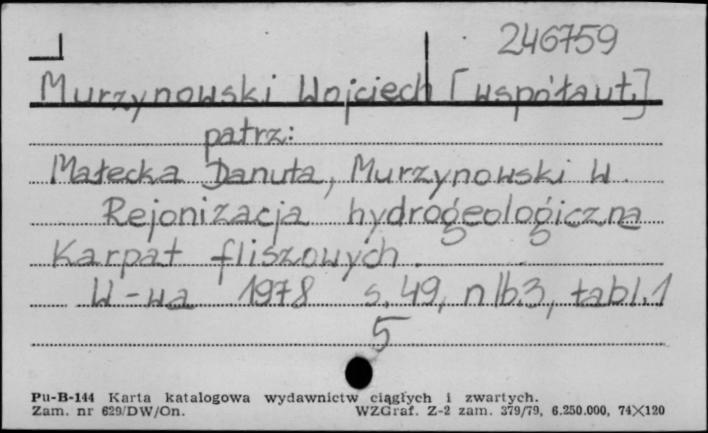 246759
Murzynowski Wojciech [współaut.]
patrz:
Małecka Danuta, Murzynowski W.
Rejonizacja hydrogeologiczna
Karpat fliszowych.
W-wa 1978 s. 49, nlb. 3, tabl. 1
5
Pu-B-144 Karta katalogowa wydawnictw ciągłych i zwartych.
Zam. nr 629/DW/On. WZGraf. Z-2 zam. 379/79, 6.250.000, 74×120